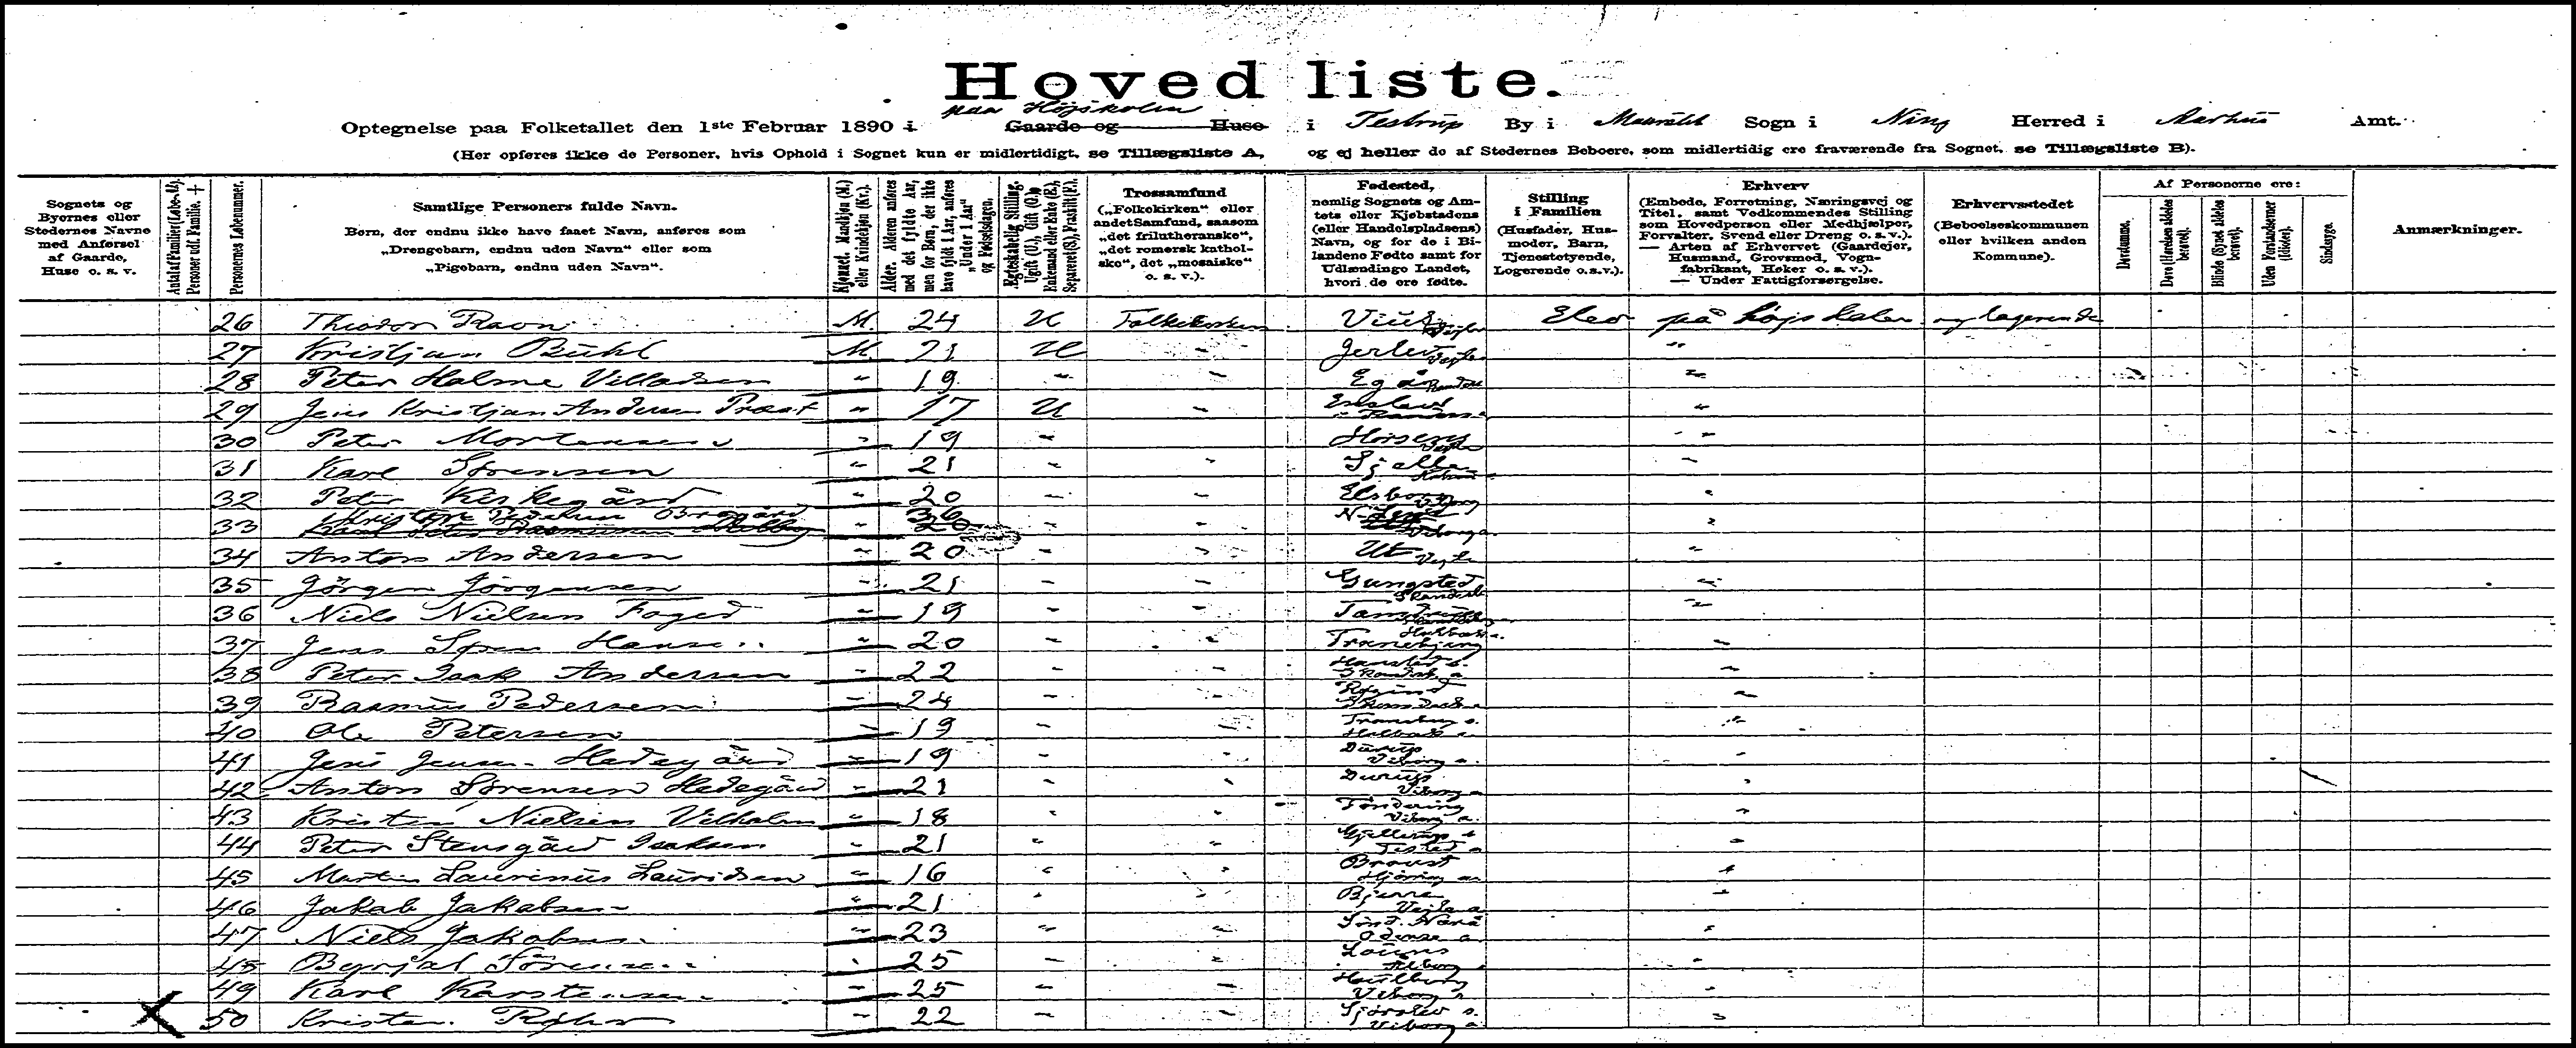 Hovedliste.
Optegnelse paa Folketallet den 1ste Februar 1890 i paa Höjskolen Gaarde og Huse i Testrup By i Sogn i Ning Herred i Aarhus Amt.
(Her opføres ikke de Personer, hvis Ophold i Sognet kun er midlertidigt, se Tillægsliste A, og ej heller de af Stedernes Beboere, som midlertidig ere fraværende fra Sognet, se Tillægsliste B).
Sognets og Byernes eller Stedernes Navne med Anførsel af Gaarde, Huse o. s. v.
Antal af Familier (Løbe-Nr.). Personer udf. Familie. +
Personernes Løbenummer.
Samtlige Personers fulde Navn.
Børn, der endnu ikke have faaet Navn, anføres som „Drengebarn, endnu uden Navn“ eller som „Pigebarn, endnu uden Navn“.
Kjønnet. Mandkjøn (M.) eller Kvindekjøn (Kv.).
Alder. Alderen anføres med det fyldte Aar, men for Børn, der ikke have fyldt 1 Aar, anføres „Under 1 Aar“ og Fødselsdagen.
Ægteskabelig Stilling. Ugift (U.), Gift (G.), Enkemand eller Enke (E.), Separeret (S.), Fraskilt (F.).
Trossamfund („Folkekirken“ eller andet Samfund, saasom „det frilutheranske“, „det romersk katholske“, det „mosaiske“ o. s. v.).
Fødested, nemlig Sognets og Amtets eller Kjøbstadens (eller Handelspladsens) Navn, og for de i Bilandene Fødte samt for Udlændinge Landet, hvori de ere fødte.
Stilling i Familien (Husfader, Husmoder, Barn, Tjenestetyende, Logerende o.s.v.).
Erhverv (Embede, Forretning, Næringsvej og Titel, samt Vedkommendes Stilling som Hovedperson eller Medhjælper, Forvalter, Svend eller Dreng o. s. v.). — Arten af Erhvervet (Gaardejer, Husmand, Grovsmed, Vognfabrikant, Høker o. s. v.). — Under Fattigforsørgelse.
Erhvervsstedet (Beboelseskommunen eller hvilken anden Kommune).
Af Personerne ere:
Døvstumme.
Døve (Hørelsen aldeles berøvet).
Blinde (Synet aldeles berøvet).
Uden Forstandsevner (Idioter).
Sindssyge.
Anmærkninger.
26 Theodor Ravn M. 24 U Folkekirken Vejle Elev på højskolen og logerende
27 Kristjan Buhl M. 21 U Jerlev Vejle "
28 Peter Holme Villadsen " 19 " - Egå Randers "
29 Jens Kristjan Andersen Praast " 17 U - Enslev Randers "
30 Peter Mortensen " 19 - Vejle "
31 Karl Sørensen " 21 - " "
32 Peter Kirkegård " 20 - - Elsborg Viborg "
33 36 - - Viborg a. "
34 Anton Andersen - 20 - - Ut Vejle "
35 Jörgen Jörgensen - 21 - - Gangsted Skanderb. "
36 Niels Nielsen Foged - 19 - - "
37 Jens Sören Hansen " 20 - - Tranebjerg Holbæk a. -
38 Peter Isak Andersen - 22 - - Hansted s. Skanderb. a -
39 Rasmus Pedersen - 24 - - -
40 Ole Petersen - 19 - - Tranebjerg s. Holbæk a "
41 Jens Jensen Hedegård - 19 - - Durup Viborg a. -
42 Anton Sørensen Hedegård - 21 - - Durup Viborg a "
43 Kristen Nielsen Vilholm " 18 " " Tøndering Viborg a. -
44 Peter Stensgård Isaksen " 21 " " Gjellerup s Tisted a -
45 Martin Laurinus Lauridsen " 16 " " Brovst Hjörring a "
46 Jakob Jakobsen " 21 " " Bjerre Vejle a. -
47 Niels Jakobsen " 23 " " Sönd. Nærå Odense a. "
48 Byrjal Sörensen " 25 - - Louns Ålborg -
49 Karl Karstensen - 25 - - Viborg a -
50 Kristen - 22 - - Sjörslev s. Viborg a -